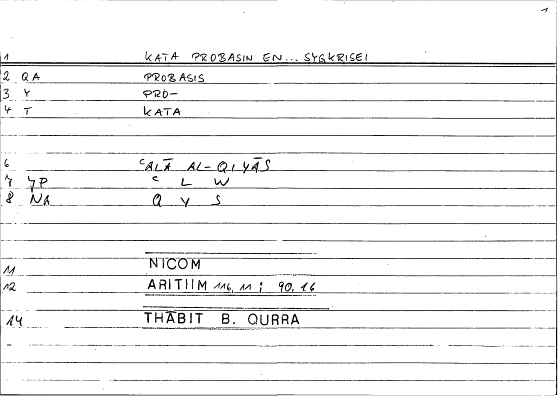 1
1 KATA PROBASIN EN... SYGKRISEI
2 QA PROBASIS
3 Y PRO-
4 T KATA
6 ʿALĀ AL-QIYĀS
7 YP ʿ L W
8 NA Q Y S
11 NICOM
12 ARITHM 116,11; 90,16
14 THĀBIT B. QURRA